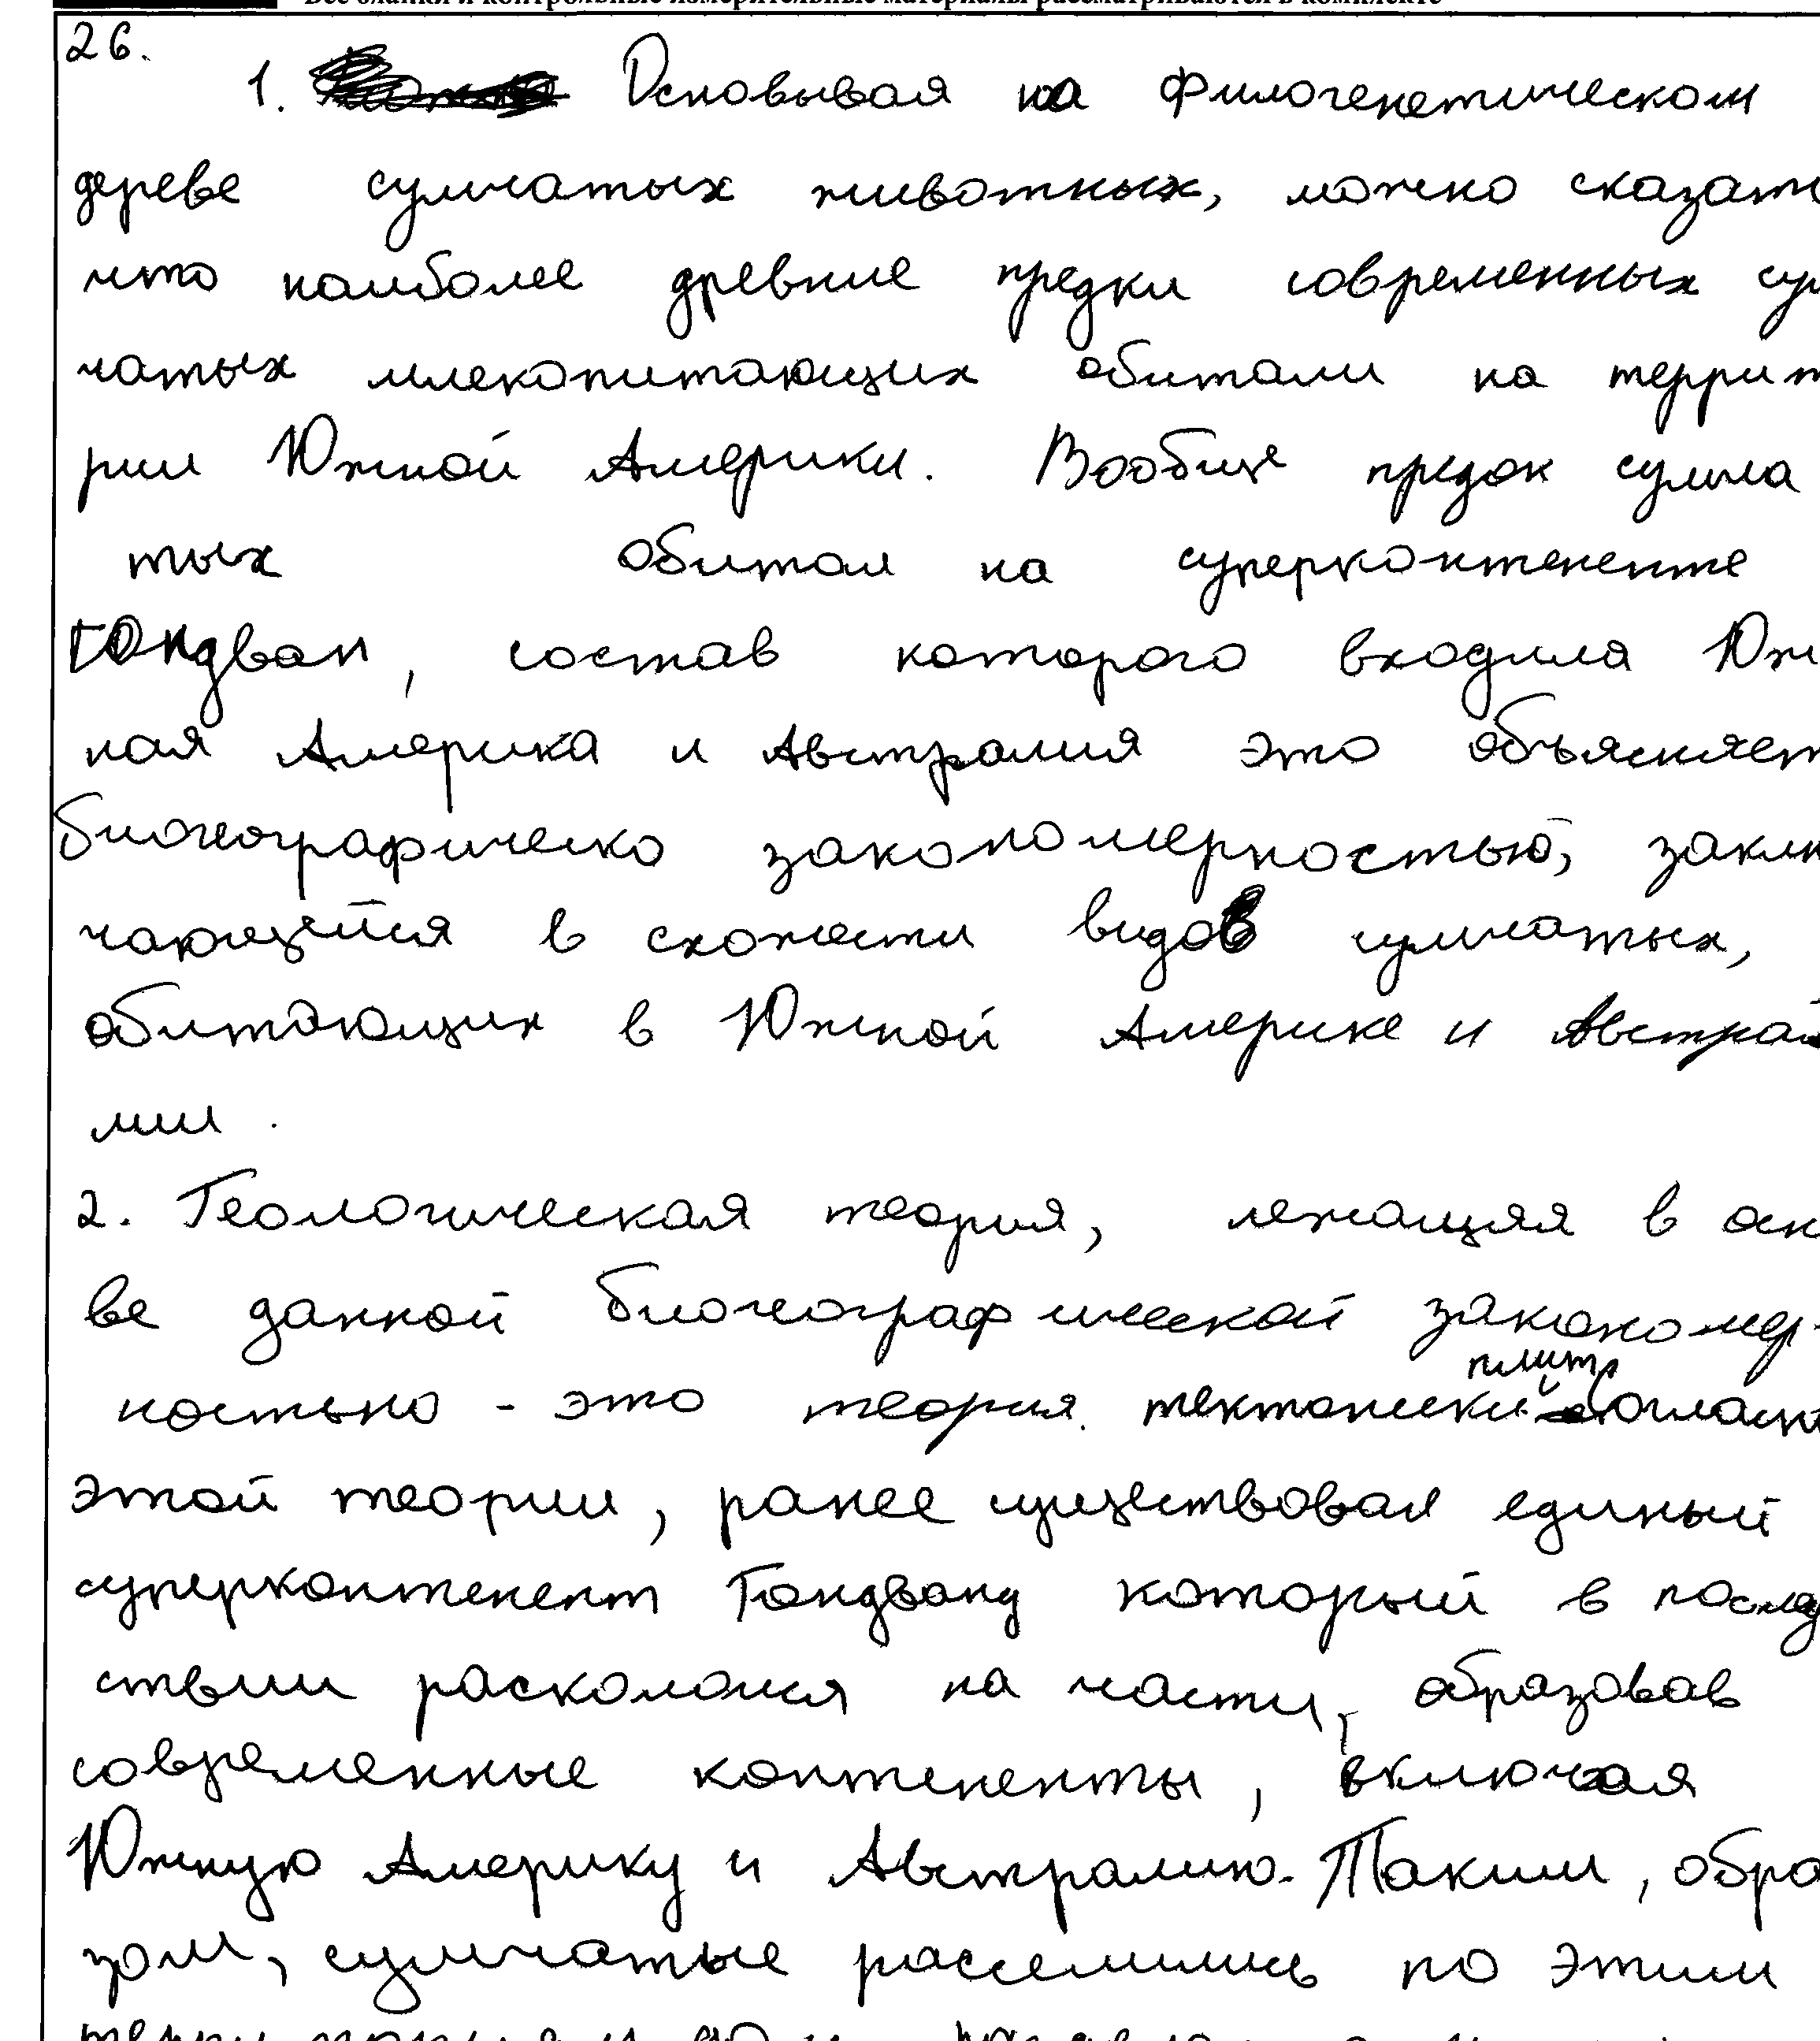 Все бланки и контрольные измерительные материалы рассматриваются в комплекте
26.
1. Основывая на филогенетическом
дереве сумчатых животных, можно сказать
что наиболее древние предки современных сум
чатых млекопитающих обитали на террито
рии Южной Америки. Вообще предок сумча
тых обитал на суперконтененте
Гондван, состав которого входила Юж
ная Америка и Австралия это объясняет
биогеографическо закономерностью, заклю
чающейся в схожести видов сумчатых,
обитающих в Южной Америке и Австрал
лии.
2. Геологическая теория, лежащяя в осно
ве данной биогеографической закономер-
ностью - это теория тектоники плит. Согласно
этой теории, ранее существовал единый
суперконтенент Гондванд который в послед
ствии раскололся на части, образовав
современные контененты, включая
Южную Америку и Австралию. Таким, обра
зом, сумчатые расселились по этим